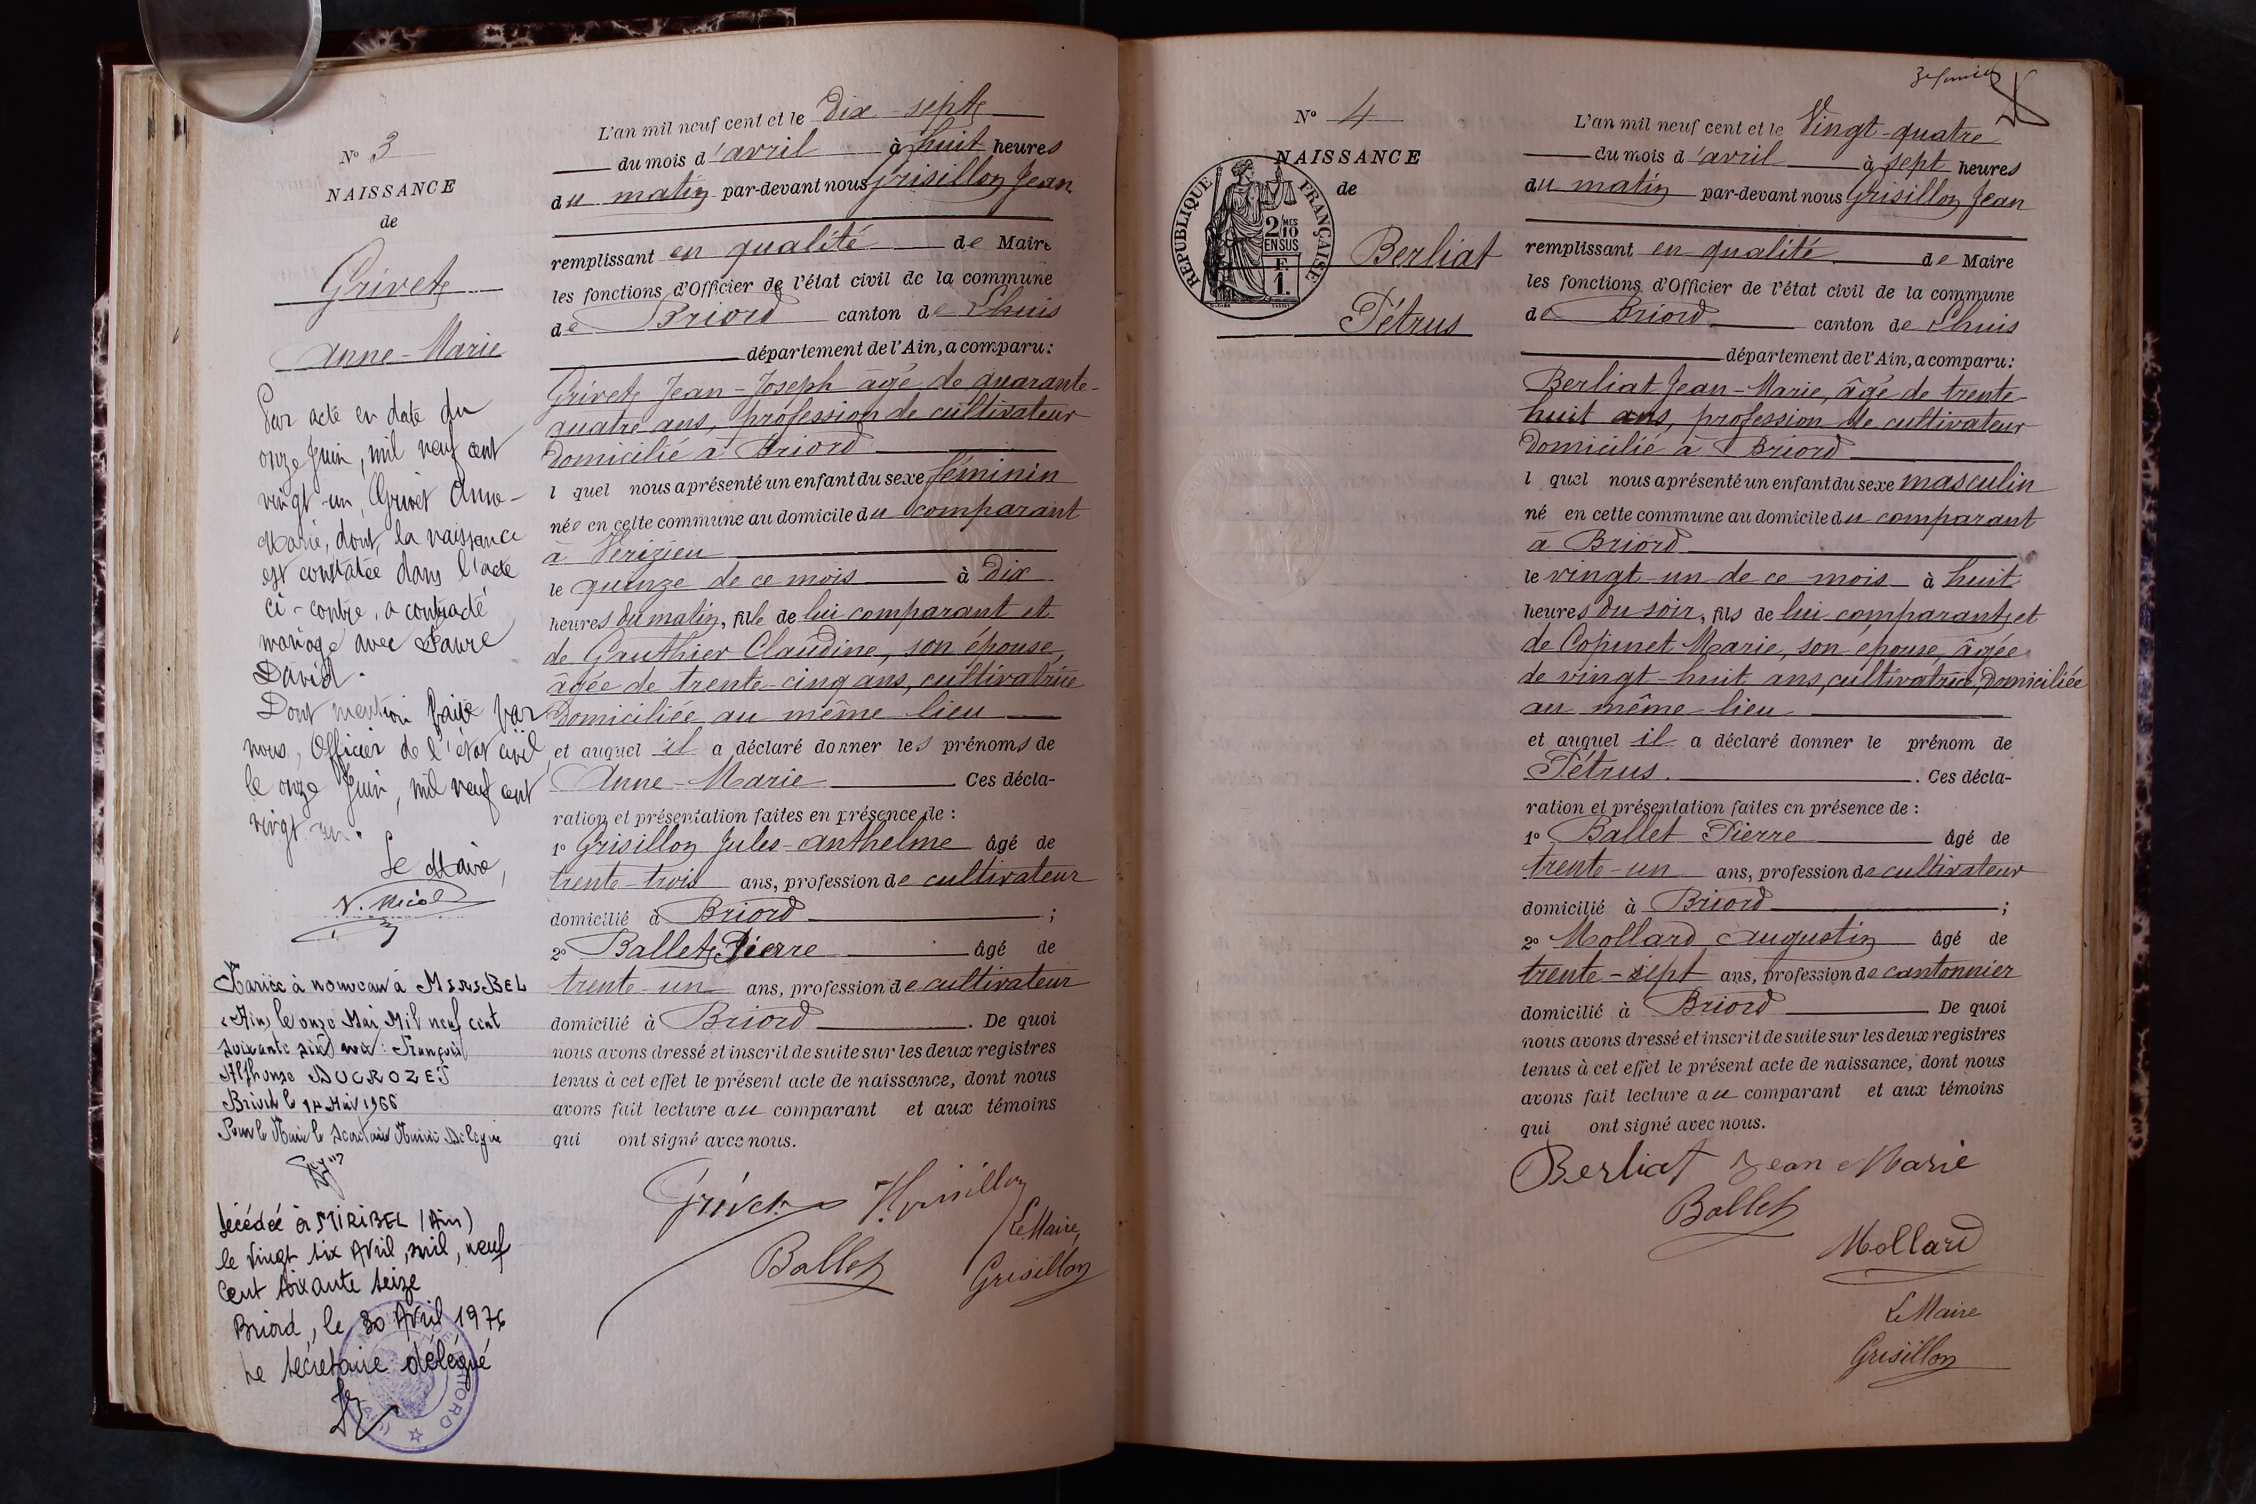 N° 3
NAISSANCE
de
Grivet
Anne-Marie
Par acte en date du
onze Juin, mil neuf cent
vingt-un, Grivet Anne-
Marie, dont la naissance
est constatée dans l'acte
ci-contre, a contracté
mariage avec Favre
David.
Dont mention faite par
nous, Officier de l'état civil
le onze Juin, mil neuf cent
vingt un.
Le Maire,
Mariée à nouveau à MIRIBEL
(Ain) le onze Mai Mil neuf cent
soixante six avec : François
Alphonse DUCROZET
Briord le 14 Mai 1966
Pour le Maire le Secrétaire Mairie Délégué
Décédée à MIRIBEL (Ain)
le vingt six Avril, mil, neuf
cent soixante seize
Briord, le 30 Avril 1976
Le secrétaire délégué
L'an mil neuf cent et le Dix-sept
du mois d'avril à huit heures
du matin par-devant nous Grisillon Jean
remplissant en qualité de Maire
les fonctions d'Officier de l'état civil de la commune
de Briord canton de Lhuis
département de l'Ain, a comparu:
Grivet Jean-Joseph âgé de quarante-
quatre ans, profession de cultivateur
Domicilié à Briord
l quel nous a présenté un enfant du sexe féminin
née en cette commune au domicile du comparant
à Vérizieu
le quinze de ce mois à Dix
heures du matin, fille de lui comparant et
de Gauthier Claudine, son épouse,
âgée de trente-cinq ans, cultivatrice
Domiciliée au même lieu
et auquel il a déclaré donner les prénoms de
Anne-Marie Ces décla-
ration et présentation faites en présence de :
1° Grisillon Jules-Anthelme âgé de
trente-trois ans, profession de cultivateur
domicilié à Briord ;
2° Ballet Pierre âgé de
trente-un ans, profession de cultivateur
domicilié à Briord . De quoi
nous avons dressé et inscrit de suite sur les deux registres
tenus à cet effet le présent acte de naissance, dont nous
avons fait lecture au comparant et aux témoins
qui ont signé avec nous.
Grivet Grisillon
Le Maire,
Ballet Grisillon
N° 4
NAISSANCE
de
REPUBLIQUE FRANÇAISE
2/10 MES
EN SUS
F.
1.
Berliat
Pétrus
L'an mil neuf cent et le Vingt-quatre
du mois d'avril à sept heures
du matin par-devant nous Grisillon Jean
remplissant en qualité de Maire
les fonctions d'Officier de l'état civil de la commune
de Briord canton de Lhuis
département de l'Ain, a comparu:
Berliat Jean-Marie, âgé de trente-
huit ans, profession de cultivateur
Domicilié à Briord
l quel nous a présenté un enfant du sexe masculin
né en cette commune au domicile du comparant
à Briord
le vingt-un de ce mois à huit
heures du soir, fils de lui comparant et
de Copinet Marie, son épouse, âgée
de vingt-huit ans, cultivatrice, Domiciliée
au même lieu
et auquel il a déclaré donner le prénom de
Pétrus. . Ces décla-
ration et présentation faites en présence de :
1° Ballet Pierre âgé de
trente-un ans, profession de cultivateur
domicilié à Briord ;
2° Mollard Augustin âgé de
trente-sept ans, profession de cantonnier
domicilié à Briord De quoi
nous avons dressé et inscrit de suite sur les deux registres
tenus à cet effet le présent acte de naissance, dont nous
avons fait lecture au comparant et aux témoins
qui ont signé avec nous.
Berliat Jean Marie
Ballet
Mollard
Le Maire
Grisillon